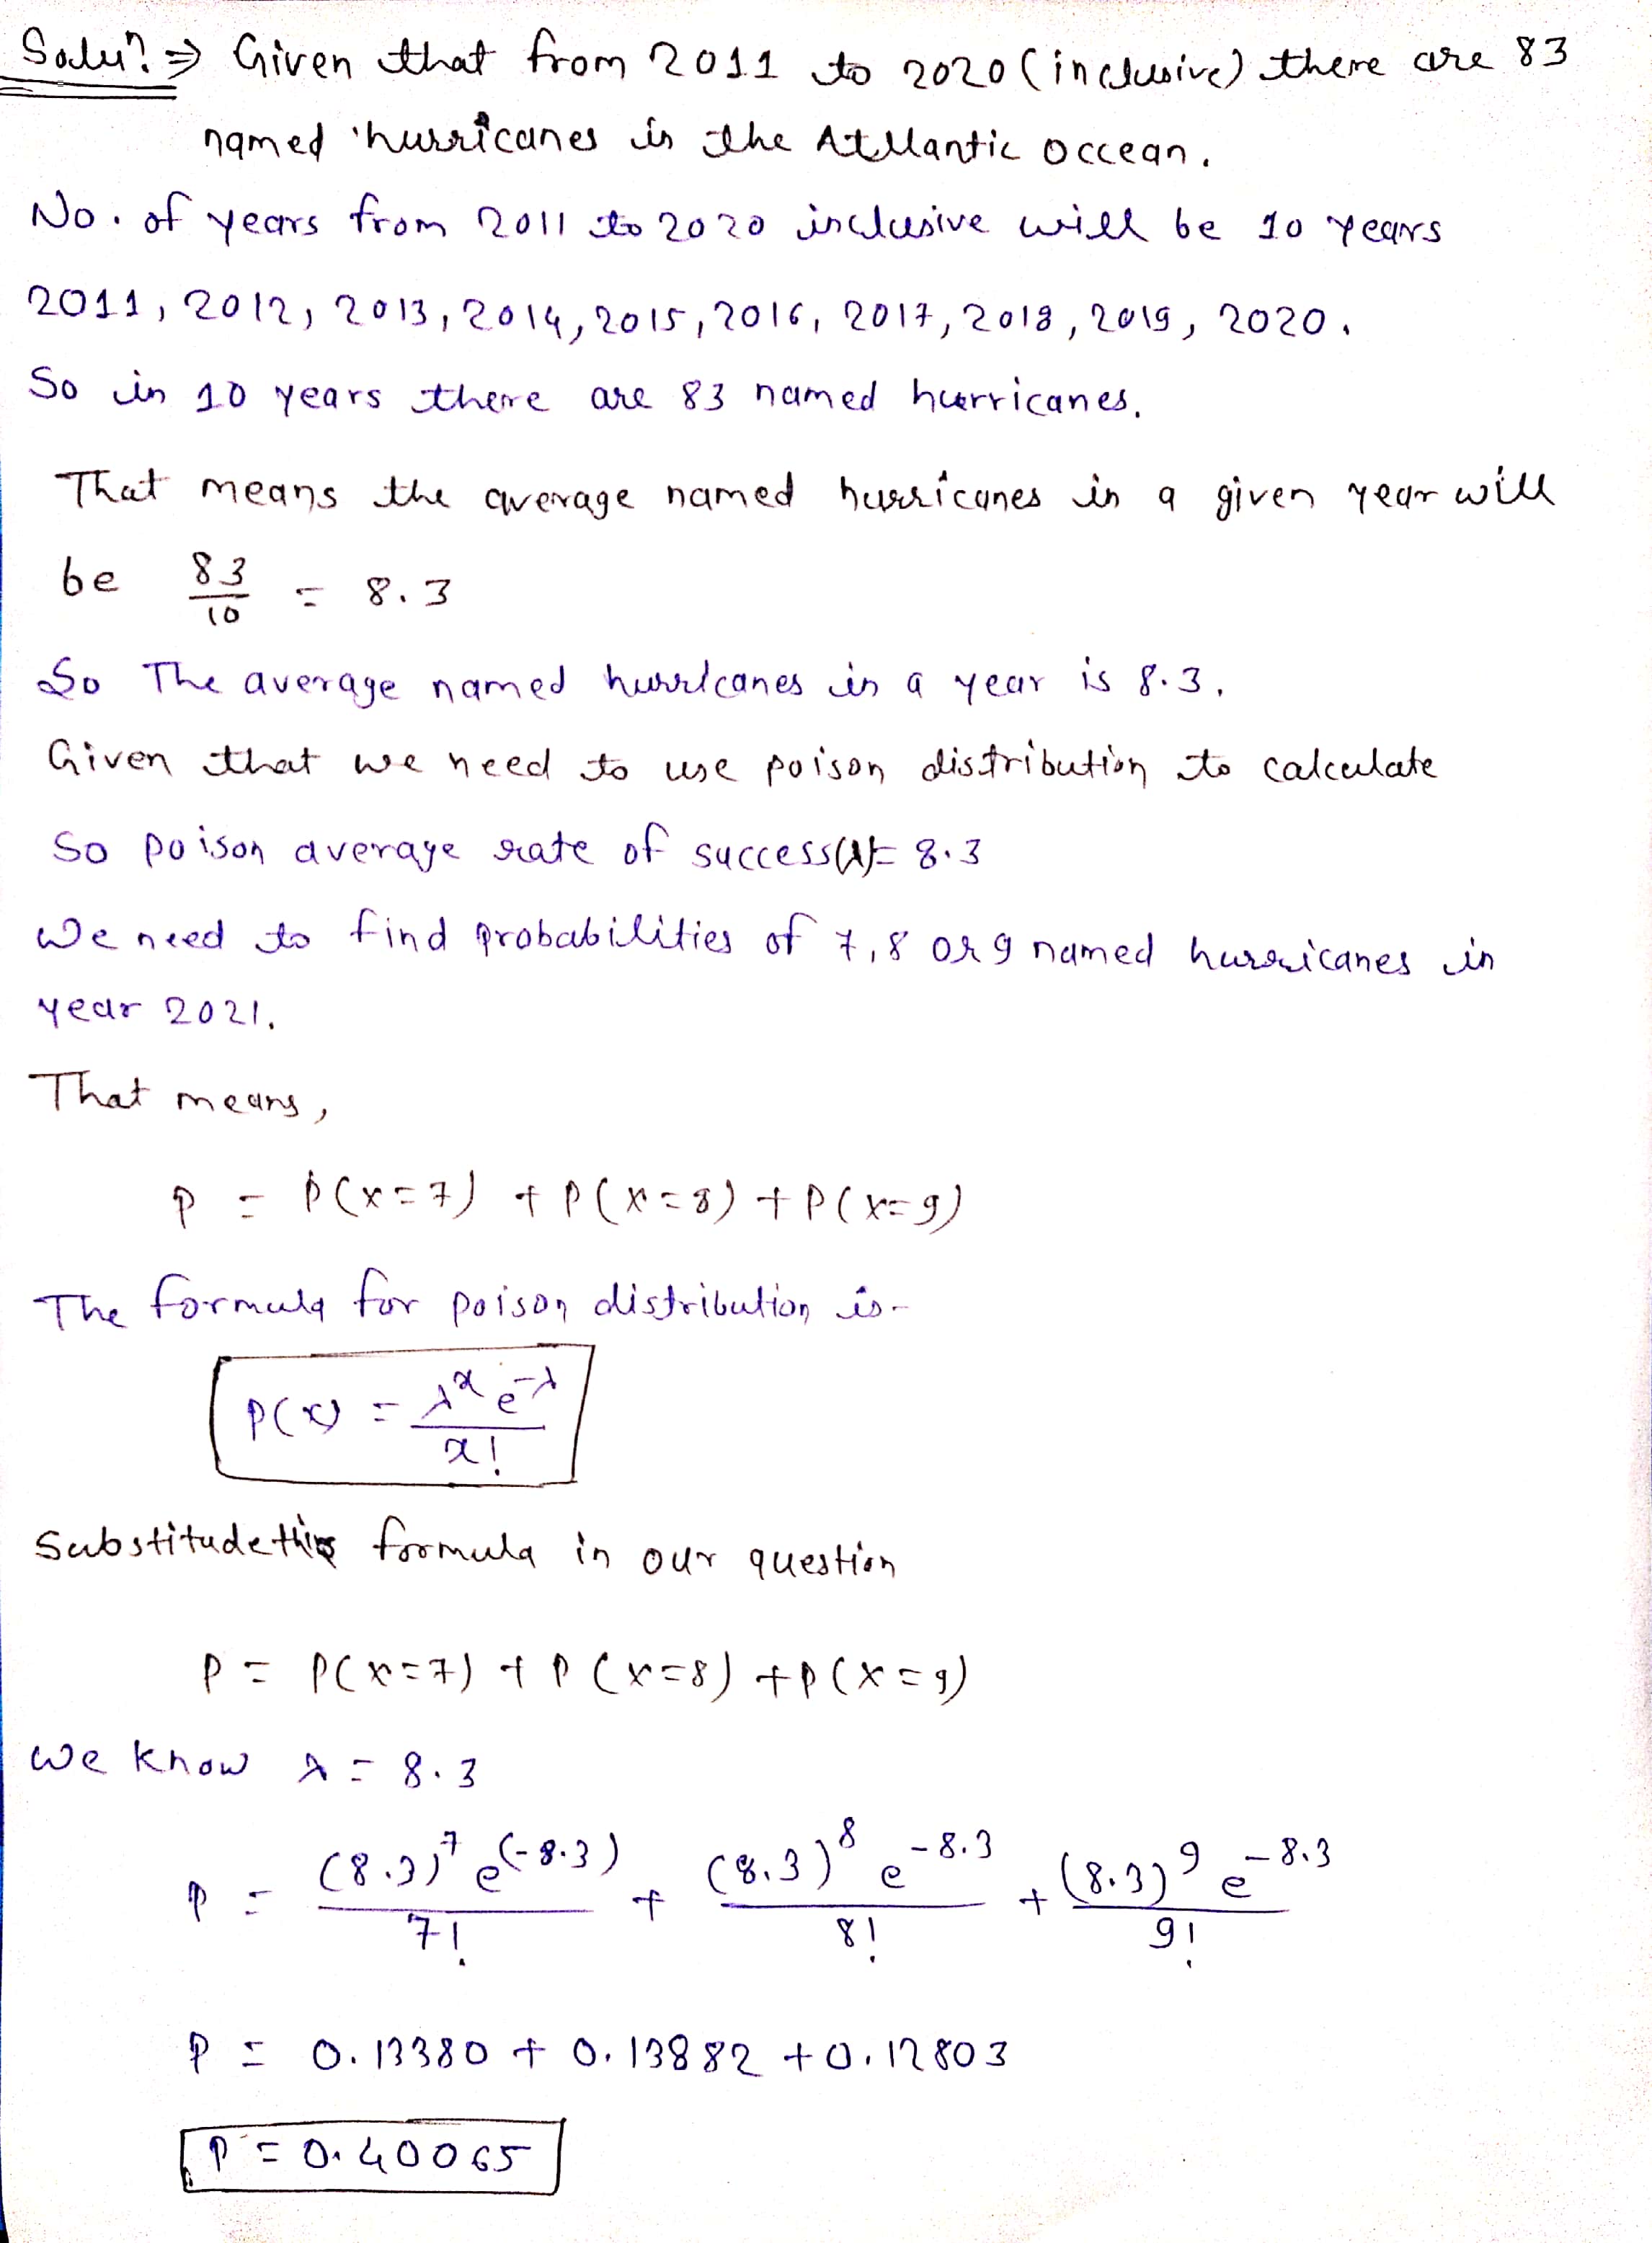 Solun ⇒ Given that from 2011 to 2020 (inclusive) there are 83
named 'hurricanes in the Atllantic occean.
No. of years from 2011 to 2020 inclusive will be 10 years
2011, 2012, 2013, 2014, 2015, 2016, 2017, 2018, 2019, 2020.
So in 10 years there are 83 named hurricanes.
That means the average named hurricanes in a given year will
be 83/10 = 8.3
So The average named hurricanes in a year is 8.3.
Given that we need to use poison distribution to calculate
So poison average rate of success(λ)= 8.3
We need to find probabilities of 7,8 or 9 named hurricanes in
year 2021.
That means,
P = P(x=7) + P(x=8) + P(x=9)
The formula for poison distribution is-
P(x) = λ^x e^-λ / x!
Substitude this formula in our question
P = P(x=7) + P(x=8) + P(x=9)
We know λ = 8.3
P = (8.3)^7 e^(-8.3) / 7! + (8.3)^8 e^-8.3 / 8! + (8.3)^9 e^-8.3 / 9!
P = 0.13380 + 0.13882 + 0.12803
P = 0.40065